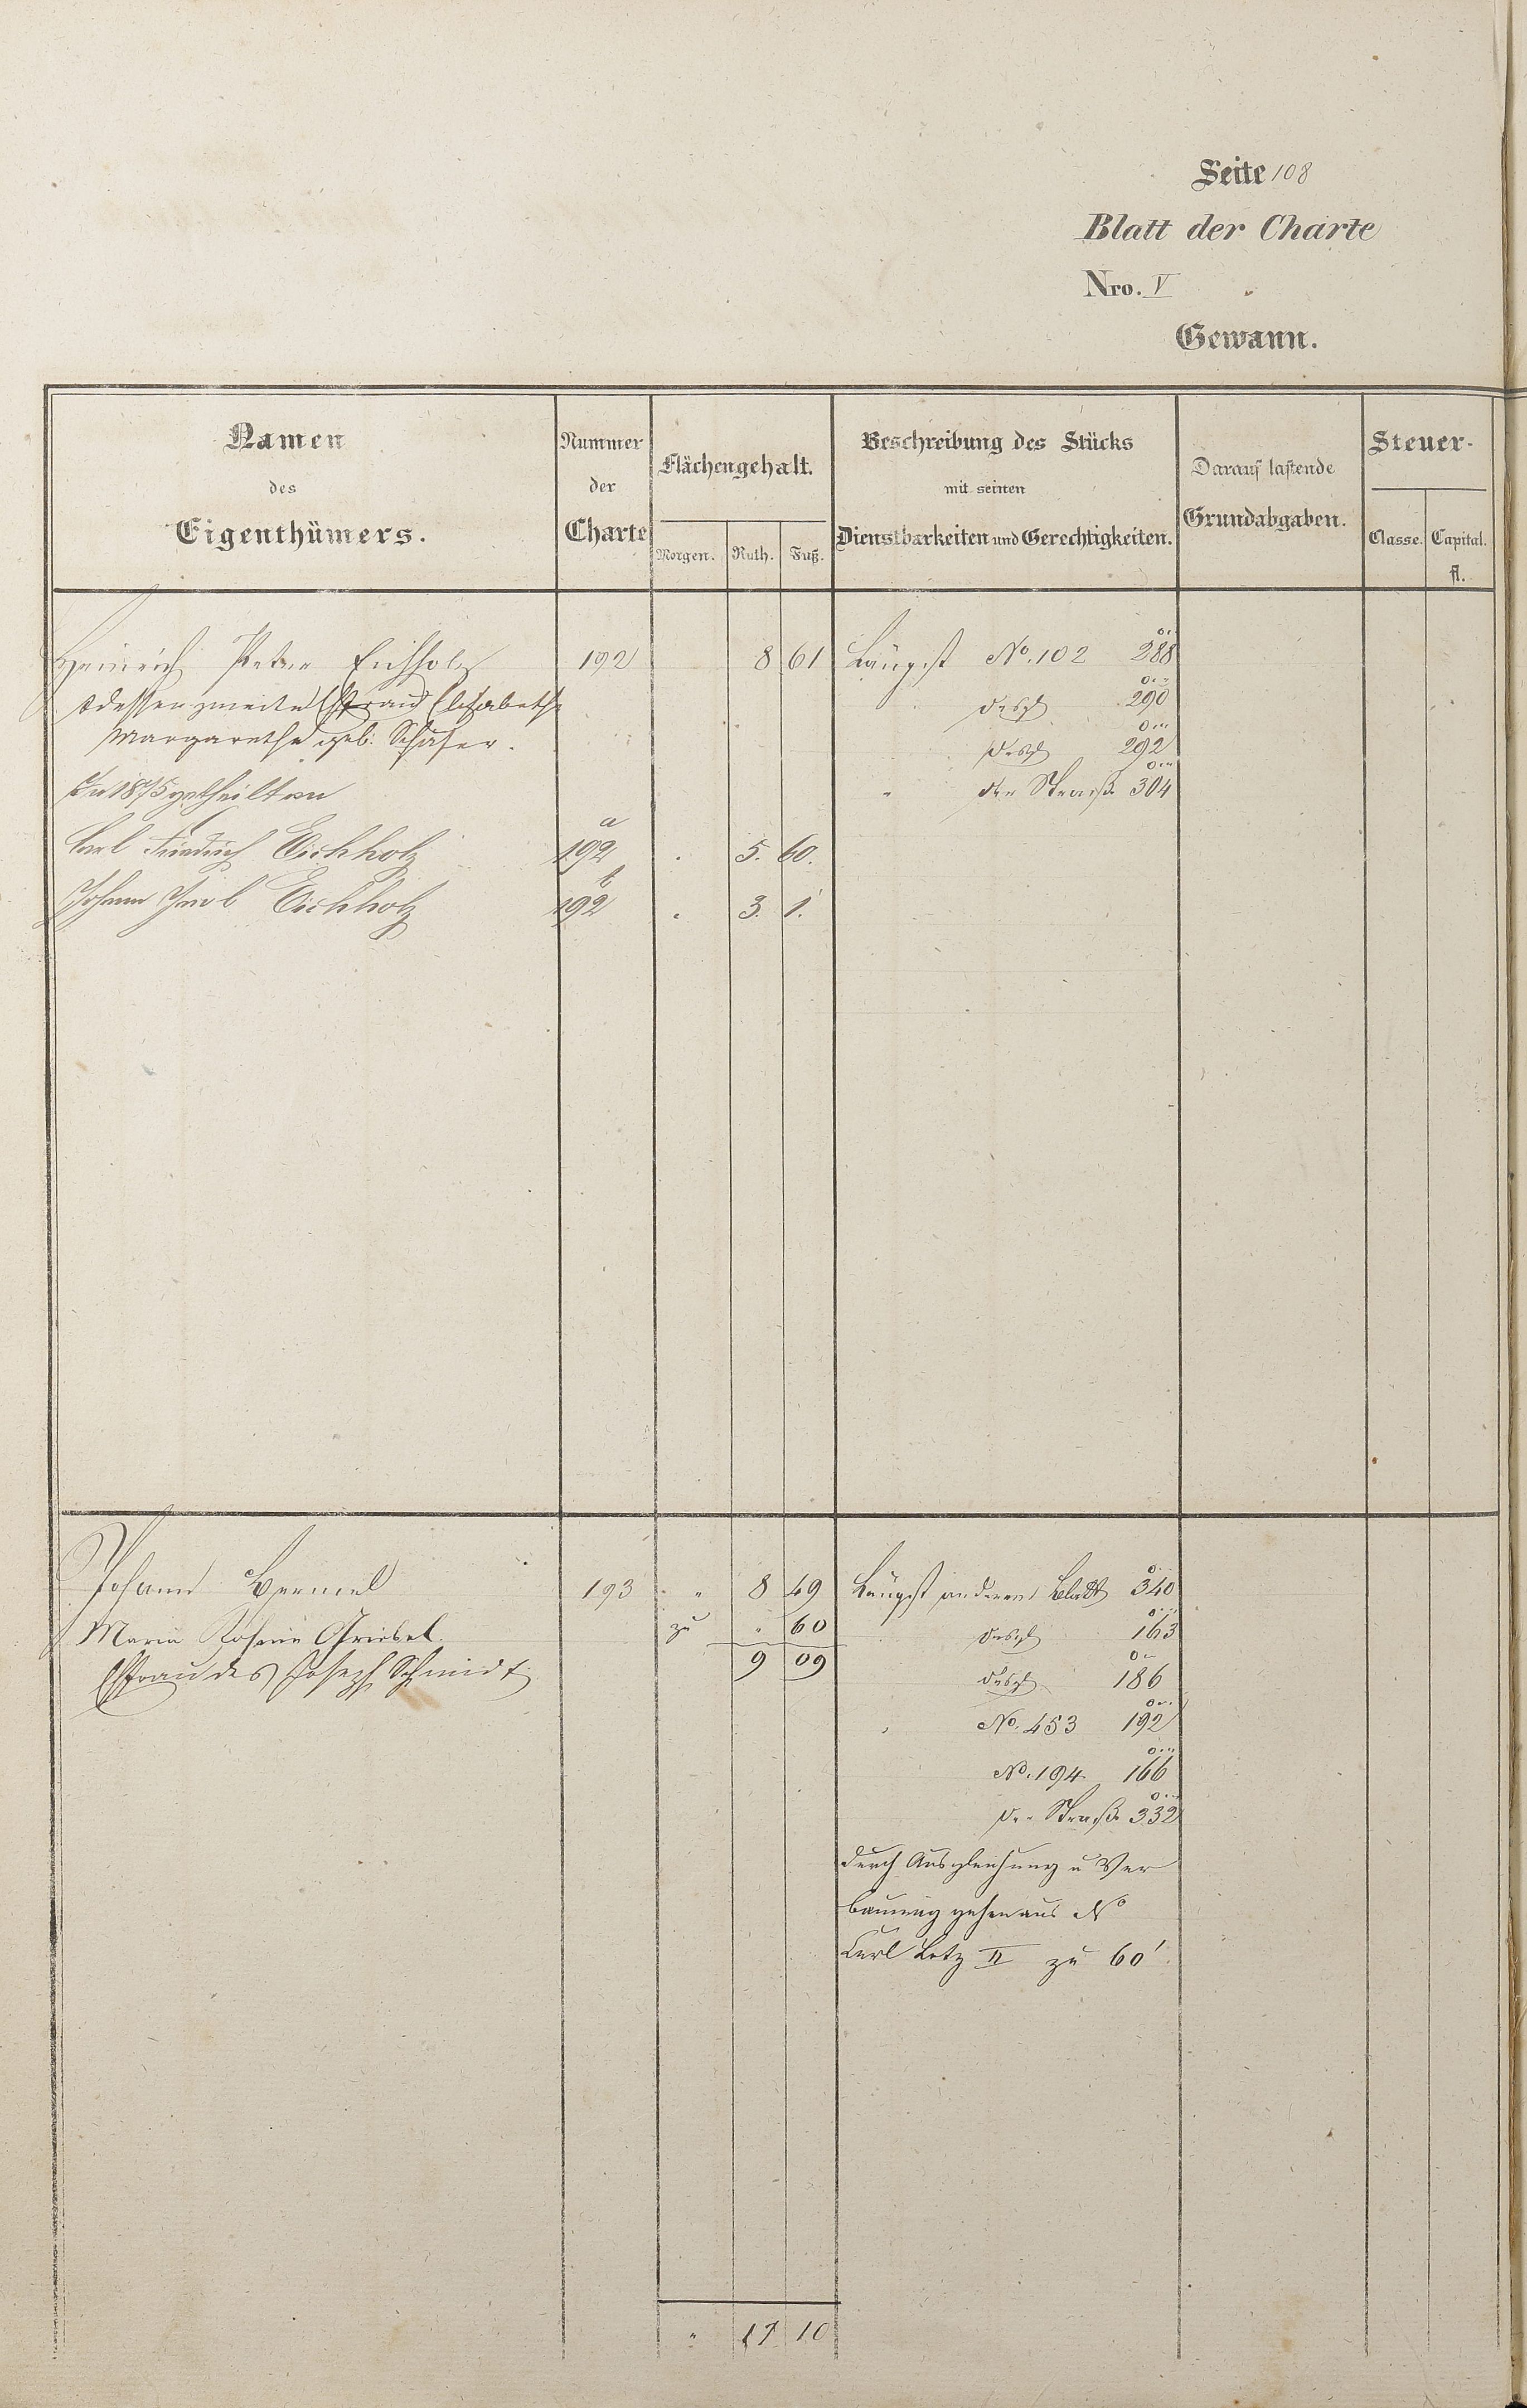 Seite 108
Blatt der Charte
Nro. V
Gewann.
Namen des Eigenthümers.
Nummer der Charte
Flächengehalt.
Morgen. Ruth. Fuß.
Beschreibung des Stücks mit seinen Dienstbarkeiten und Gerechtigkeiten.
Darauf lastende Grundabgaben.
Steuer-
Classe. Capital. fl.
Heinrich Peter Eichholz 192 8 61 Längst No. 102 288
dessen zweite Ehefrau Elisabethe desgl 290
Margarethe geb. Schäfer. desgl 292
In 1875 getheilt an der Straße 304
Carl Friedrich Eichholz 192 a 5. 60.
Johann Jacob Eichholz 192 b 3. 1.
Johann 193 " 8 49 Längst anderem Blatt 340
Maria Rosine Griebel zu " 60 desgl 163
Ehfrau des Joseph Schmidt. 9 09 desgl 186
No. 453 192
No. 194 166
der Straße 332
durch Ausgleichung u Ver
aus No
Carl Letz II zu 60'.
" 17 10